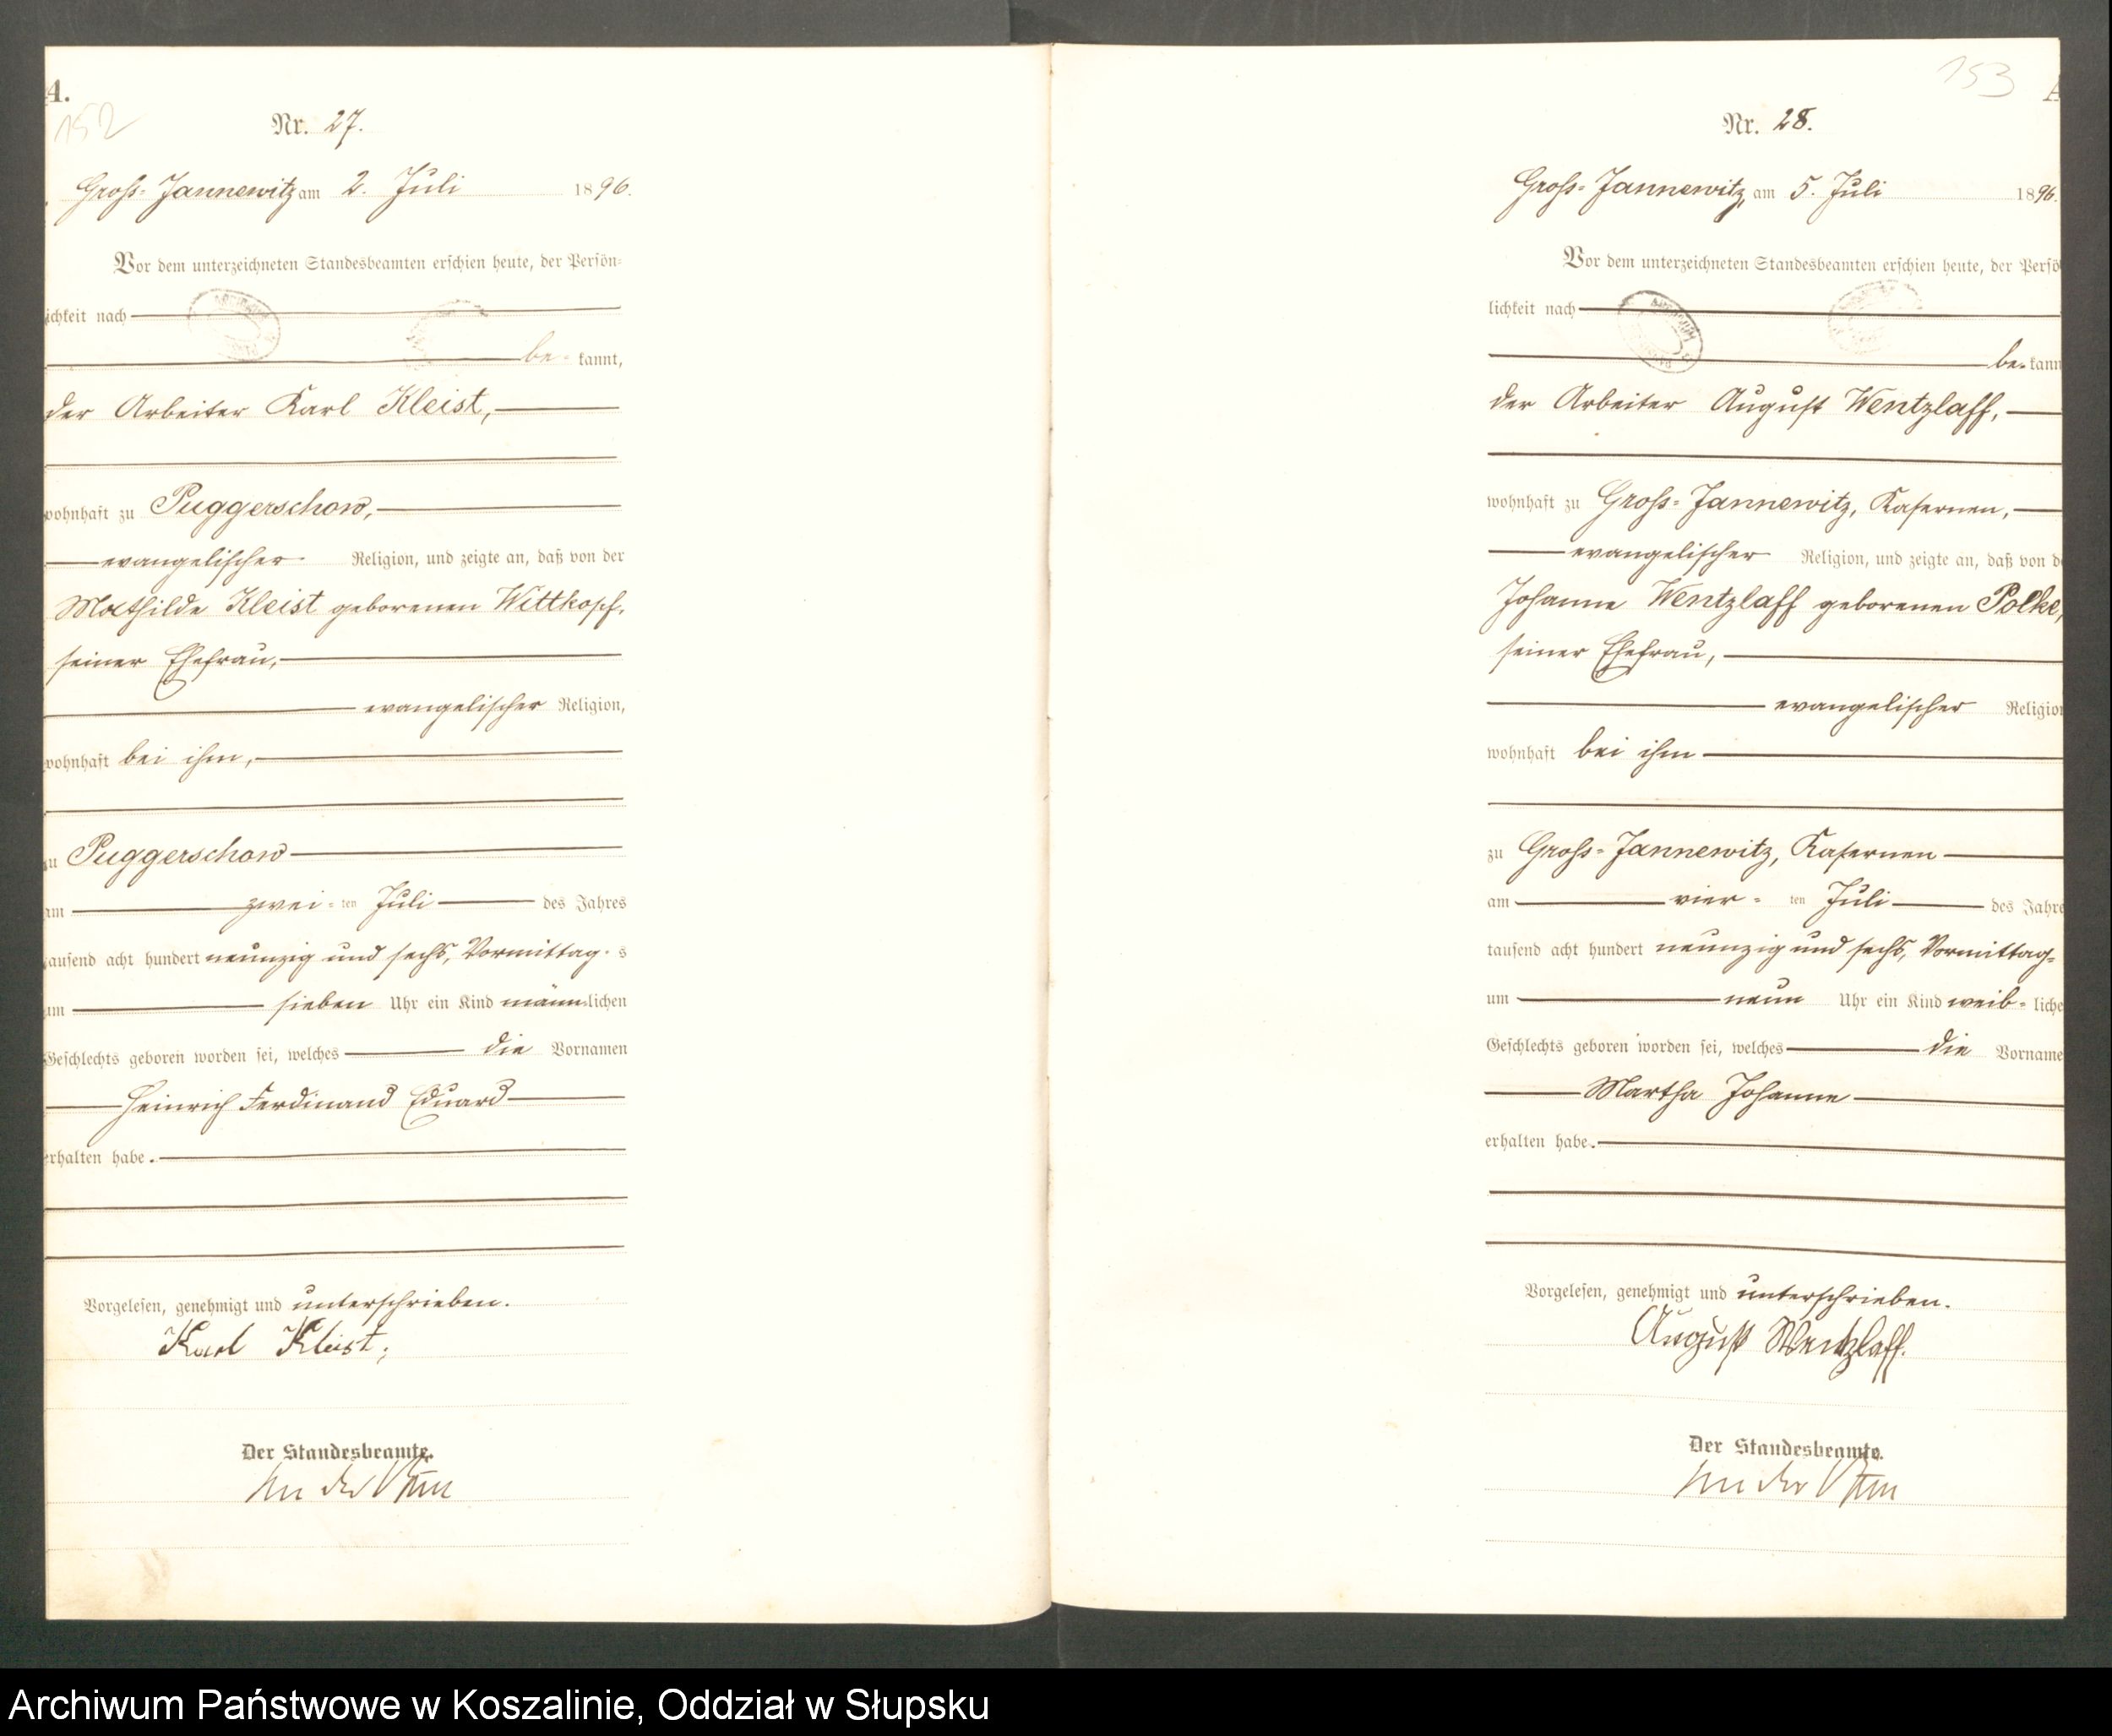 A.
152
Nr. 27.
Groß-Jannewitz am 2. Juli 1896.
Vor dem unterzeichneten Standesbeamten erschien heute, der Persön-
lichkeit nach
be- kannt,
der Arbeiter Karl Kleist,
wohnhaft zu Puggerschow,
evangelischer Religion, und zeigte an, daß von der
Mathilde Kleist geborenen Wittkopf,
seiner Ehefrau,
evangelischer Religion,
wohnhaft bei ihm,
zu Puggerschow
am zwei- ten Juli des Jahres
tausend acht hundert neunzig und sechs, Vormittag- s
um sieben Uhr ein Kind männlichen
Geschlechts geboren worden sei, welches die Vornamen
Heinrich Ferdinand Eduard
erhalten habe.
Vorgelesen, genehmigt und unterschrieben.
Karl Kleist,
Der Standesbeamte.
153
A
Nr. 28.
Groß-Jannewitz, am 5. Juli 1896.
Vor dem unterzeichneten Standesbeamten erschien heute, der Persö
lichkeit nach
be- kann
der Arbeiter August Wentzlaff,
wohnhaft zu Groß-Jannewitz, Kasernen,
evangelischer Religion, und zeigte an, daß von de
Johanne Wentzlaff geborenen Polke,
seiner Ehefrau,
evangelischer Religion
wohnhaft bei ihm
zu Groß-Jannewitz, Kasernen
am vier- ten Juli des Jahre
tausend acht hundert neunzig und sechs, Vormittag-
um neun Uhr ein Kind weib- liche
Geschlechts geboren worden sei, welches die Vorname
Martha Johanne
erhalten habe.
Vorgelesen, genehmigt und unterschrieben.
August Wentzlaff.
Der Standesbeamte.
Archiwum Państwowe w Koszalinie, Oddział w Słupsku